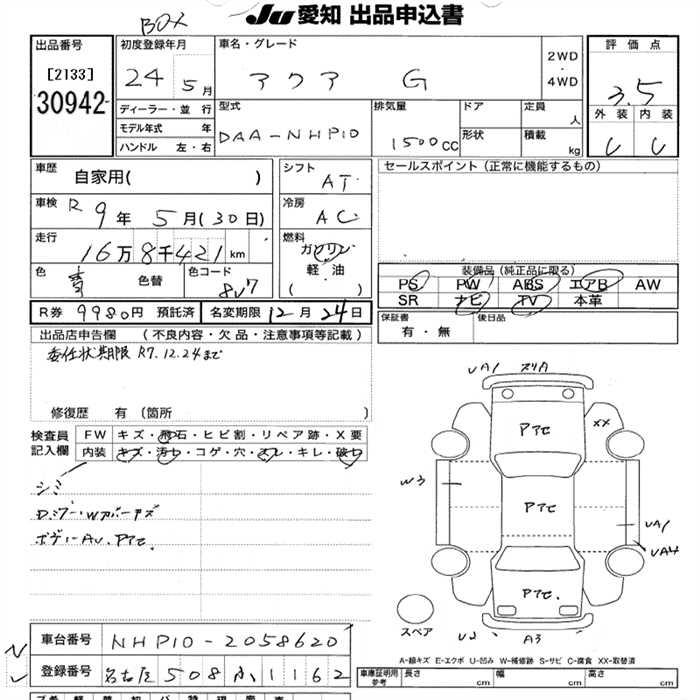 BOX
JU 愛知 出品申込書
出品番号
[2133]
30942
初度登録年月
24 5月
車名・グレード
アクア G
2WD
・
4WD
評価点
3.5
外装 内装
C C
ディーラー・並行
モデル年式 年
ハンドル 左・右
型式
DAA-NHP10
排気量
1500CC
ドア
形状
定員
人
積載
kg
車歴
自家用( )
車検 R 9年 5月(30日)
走行 16万8千421km
色 青 色替
色コード 8V7
シフト
AT
冷房
AC
燃料
ガソリン
軽・油
( )
セールスポイント(正常に機能するもの)
装備品(純正品に限る)
PS PW ABS エアB AW
SR ナビ TV 本革
R券 9980円 預託済 名変期限 12月24日
保証書
有・無
後日品
出品店申告欄 (不良内容・欠品・注意事項等記載)
委任状期限 R7.12.24まで
修復歴 有(箇所 )
検査員
記入欄
FW キズ・飛石・ヒビ割・リペア跡・X要
内装 キズ・汚レ・コゲ・穴・スレ・キレ・破レ
シミ
ボディーAU.Pアセ.
UA1 スリA
Pアセ
XX
W3
Pアセ
UA1
UA4
Pアセ.
スペア
A3
A-線キズ E-エクボ U-凹み W-補修跡 S-サビ C-腐食 XX-取替済
車台番号 NHP10-2058620
登録番号 名古屋 508 ふ 1162
車庫証明用
参考
長さ cm
幅 cm
高さ cm